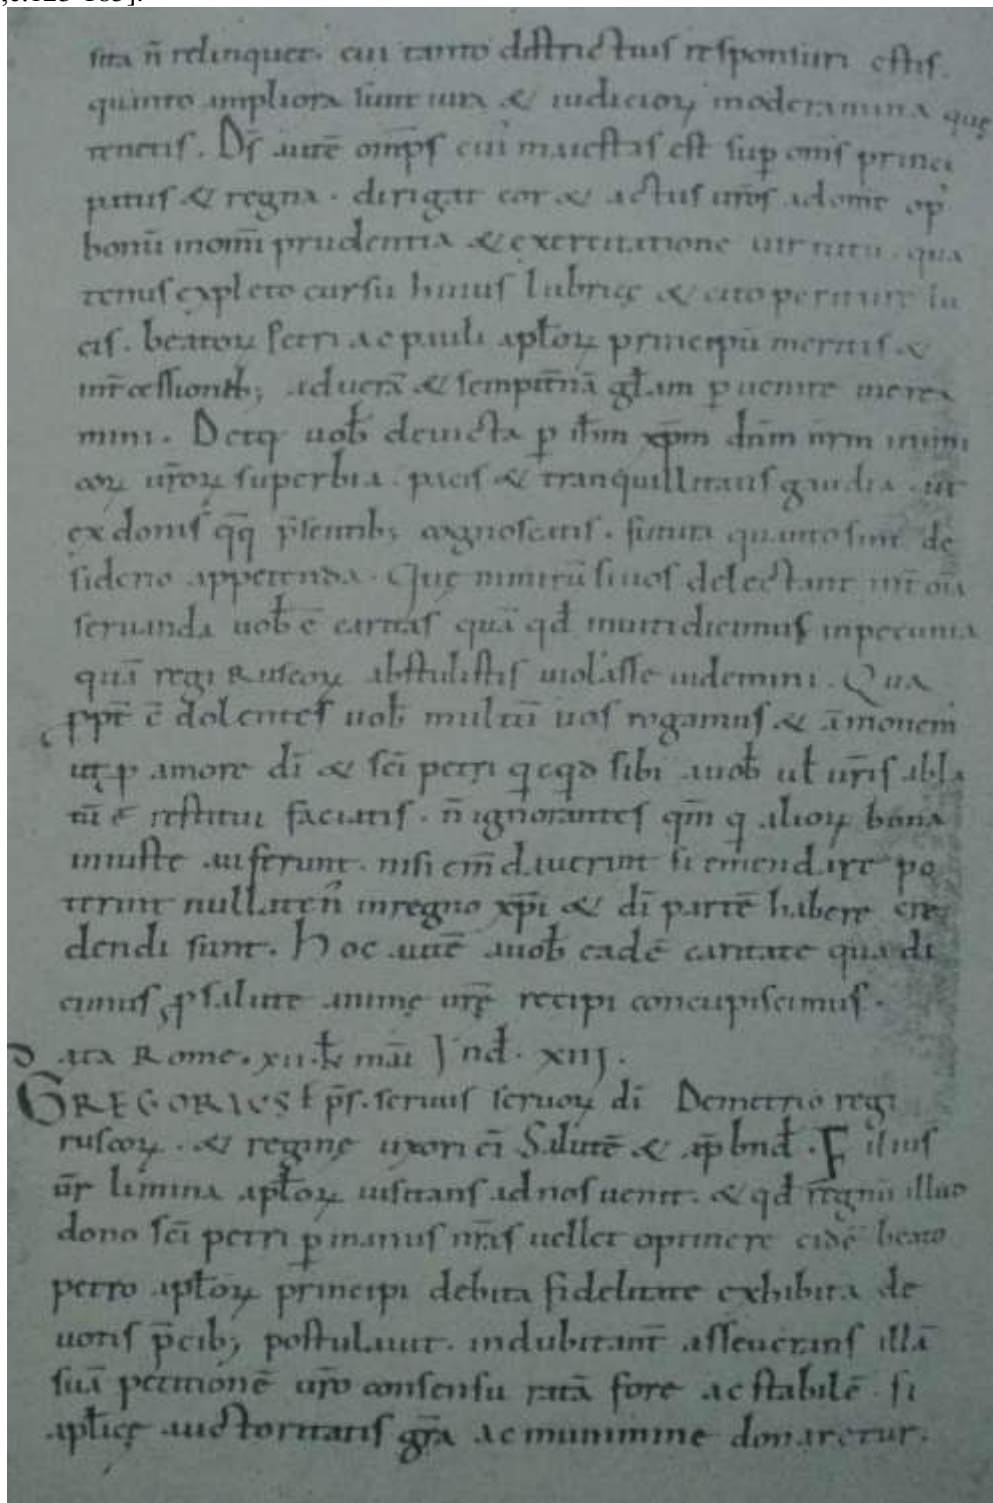 sita n̄ relinquet. cui tanto districtius responsuri estis.
quanto ampliora sunt iura & iudicioꝝ moderamina quę
tenetis. Dſ̄ autē omp̄s cui' maiestas est sup om̄s princi
patus & regna. dirigat cor & actus ur̄os ad om̄e op'
bonū in om̄i prudentia & exercitatione uirtutū. qua
tenus expleto cursu huius lubricę & cito periture lu
cis. beatoꝝ Petri ac pauli apl̄oꝝ principū meritis &
int̄cessionib; ad uerā & sempit̄nā gl̄am ꝑuenire merea
mini. Detq uob̄ deuicta ꝑ ih̄m xp̄m dn̄m nr̄m inimi
coꝝ ur̄oꝝ superbia. pacis & tranquillitatis gaudia. ut
ex donis qq̄ p̄sentib; cognoscatis. futura quanto sint de
siderio appetenda. Quę nimirū si uos delectant int̄ oīa
seruanda uob̄ ē caritas quā qd̄ inuiti dicimus in pecunia
quā regi Ruscoꝝ abstulistis uiolasse uidemini. Qua
ꝓpt̄ ē dolentes uob̄ multū uos rogamus & āmonem'
ut ꝑ amore dī & sc̄i petri qcqd sibi a uob̄ ul̄ ur̄is abla
tū ē restitui faciatis. n̄ ignorantes qm̄ q alioꝝ bona
iniuste auferunt. nisi em̄dauerint si emendare po
terint nullaten' in regno xp̄i & dī partē habere cre
dendi sunt. Hoc autē a uob̄ eadē caritate qua di
cimus ꝓ salute animę ur̄ę recipi concupiscimus.
Data Rome. xii. kl̄ maī Ind̄. xiij.
GREGORIUS ep̄s. seruus seruoꝝ dī Demetrio regi
ruscoꝝ. & reginę uxori ei' Salutē & ap̄ bnd̄. Filius
ur̄ limina apl̄oꝝ uisitans ad nos uenit. & qd̄ regnū illud
dono sc̄i petri ꝑ manus nr̄as uellet optinere eidē beato
petro apl̄oꝝ principi debita fidelitate exhibita de
uotis p̄cib; postulauit. indubitant̄ asseuerans illā
suā petitionē ur̄o consensu ratā fore ac stabilē. si
apl̄icę auctoritatis gr̄a ac munimine donaretur.